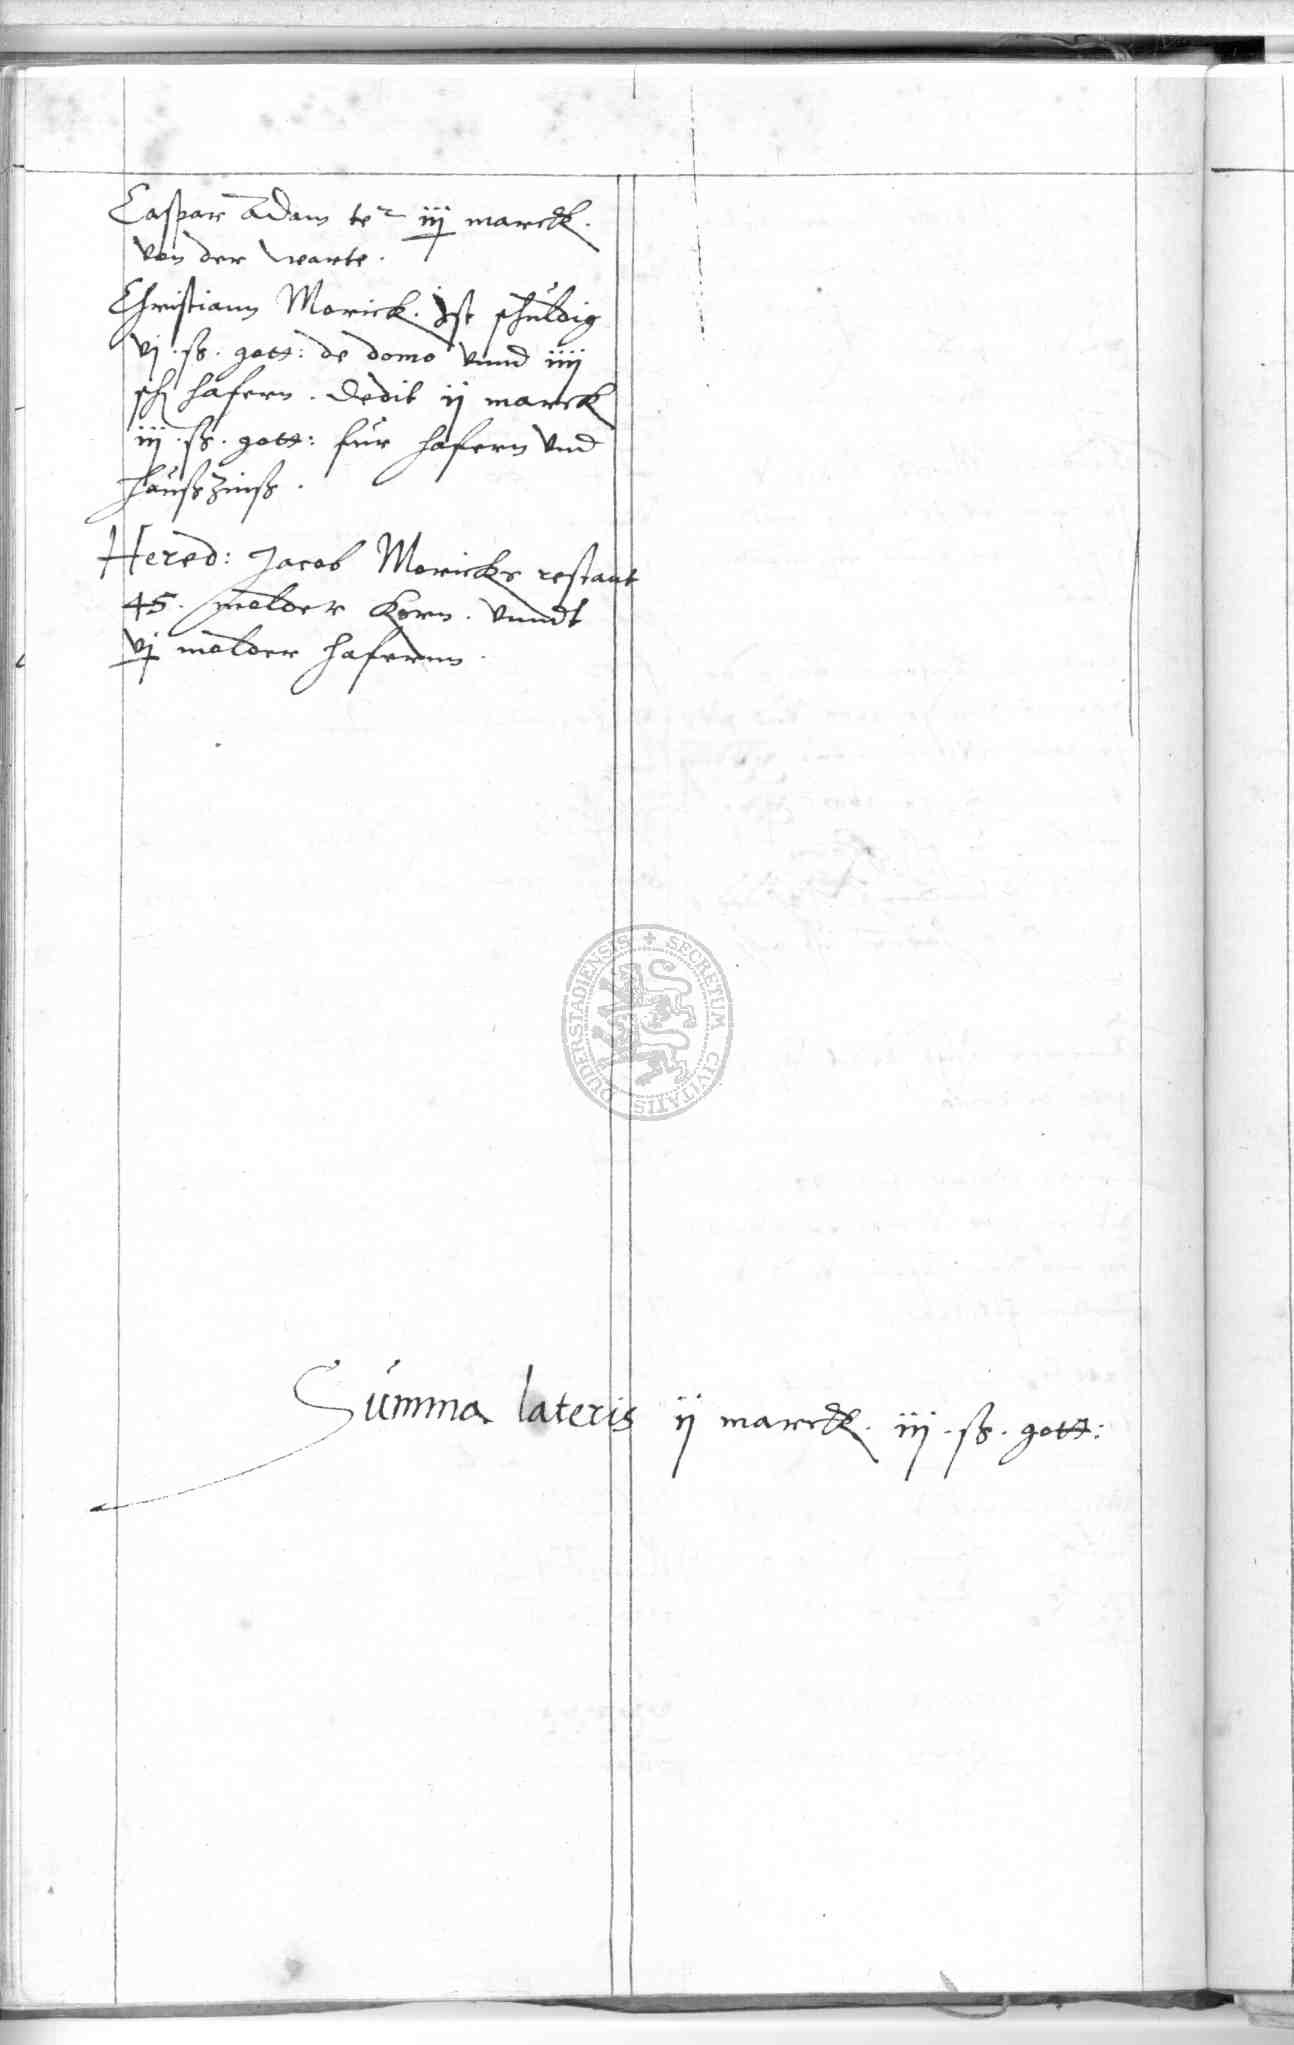 Caspar Adam te^r iij marck.
von der warte.
Christiann Morick. ist schuldig
vj. ß. gott: de domo vnnd iiij
sch hafern. dedit ij marck
iij. ß. gott: für hafern vnd
haußzinß.
Hered: Jacob Moricks restant
45. molder Korn. vnndt
vj molder hafernn.
SECRETUM CIVITATIS DUDERSTADIENSIS
Summa lateris ij marck. iij. ß. gott: